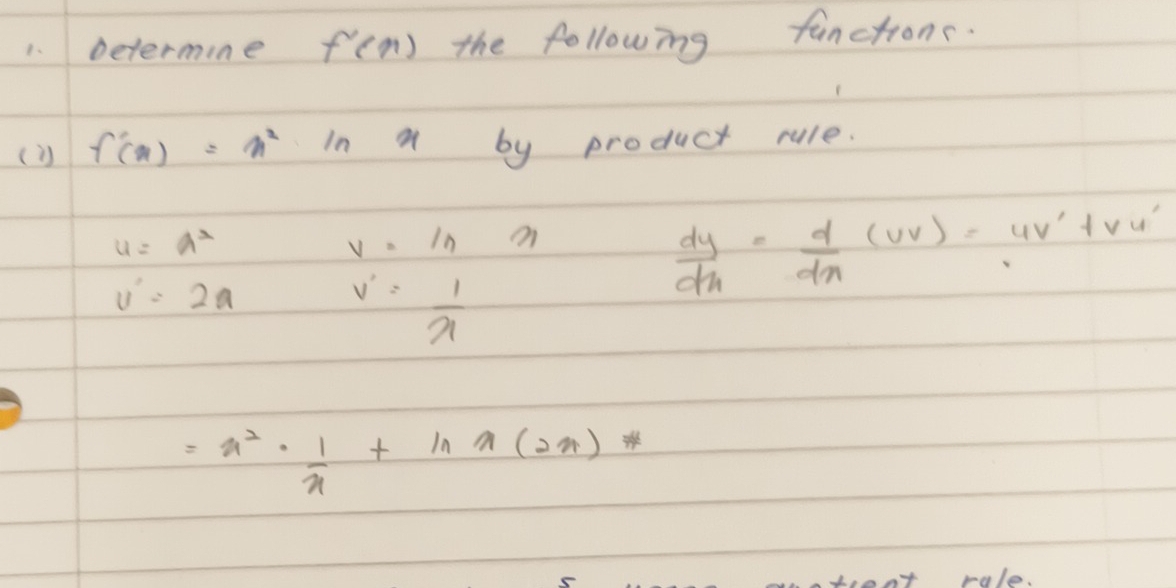 1. Determine f'(x) the following functions.
(i) f'(x) = x² ln x by product rule.
u = x² v = ln x dy/dx = d/dx (uv) = uv' + vu'
u' = 2x v' = 1/x
= x² · 1/x + ln x (2x) #
quotient rule.